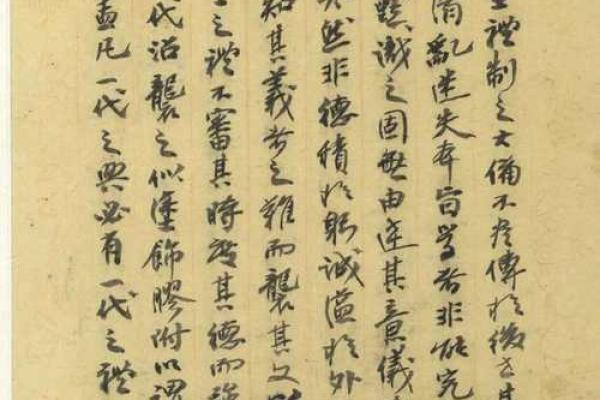 禮制之大備不克傳於後世
淆亂迷失本旨學者非能究
識之固無由達其意儀
然非德積於躬誠溢於外
知其義者之難而襲其文
之禮不審其時度其德而
代沿襲之似塗飾膠附以謂
盖凡一代之興必有一代之禮